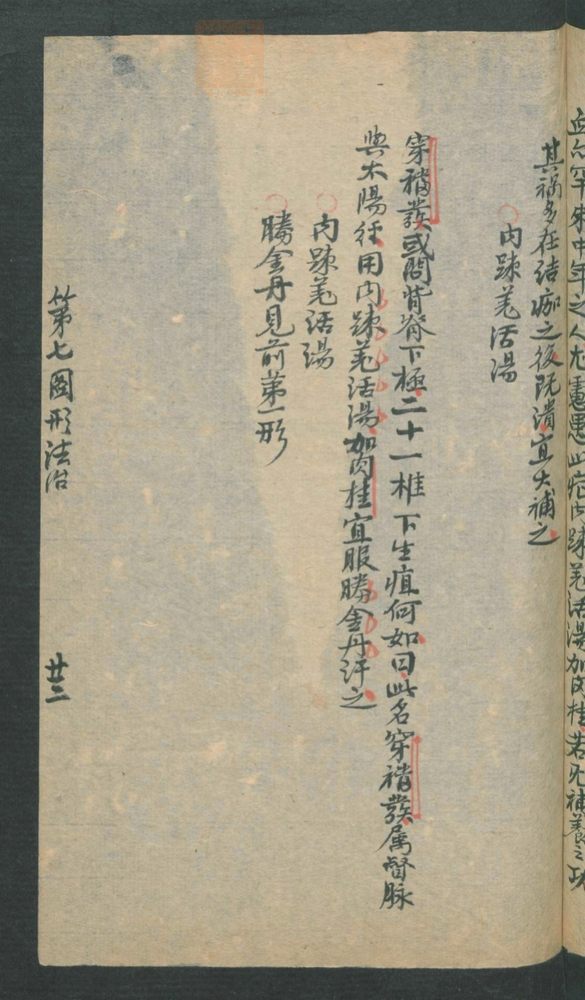 血公罕來中年之人尤慮患此症内踈羌活湯加肉桂若兄補養之功
其禍多在結痂之後既潰宜大補之
○内踈羌活湯
穿襠發或問背脊下極二十一椎下生疽何如曰此名穿襠發属督脉
與太陽行用内踈羌活湯加肉桂宜服勝金丹汗之
○内踈羌活湯
○勝金丹見前第一形
第七圖形法治 廿三